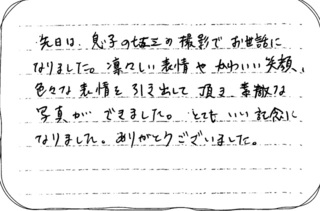 先日は、息子の七五三の撮影でお世話に
なりました。凛々しい表情やかわいい笑顔、
色々な表情を引き出して頂き素敵な
写真ができました。とてもいい記念に
なりました。ありがとうございました。